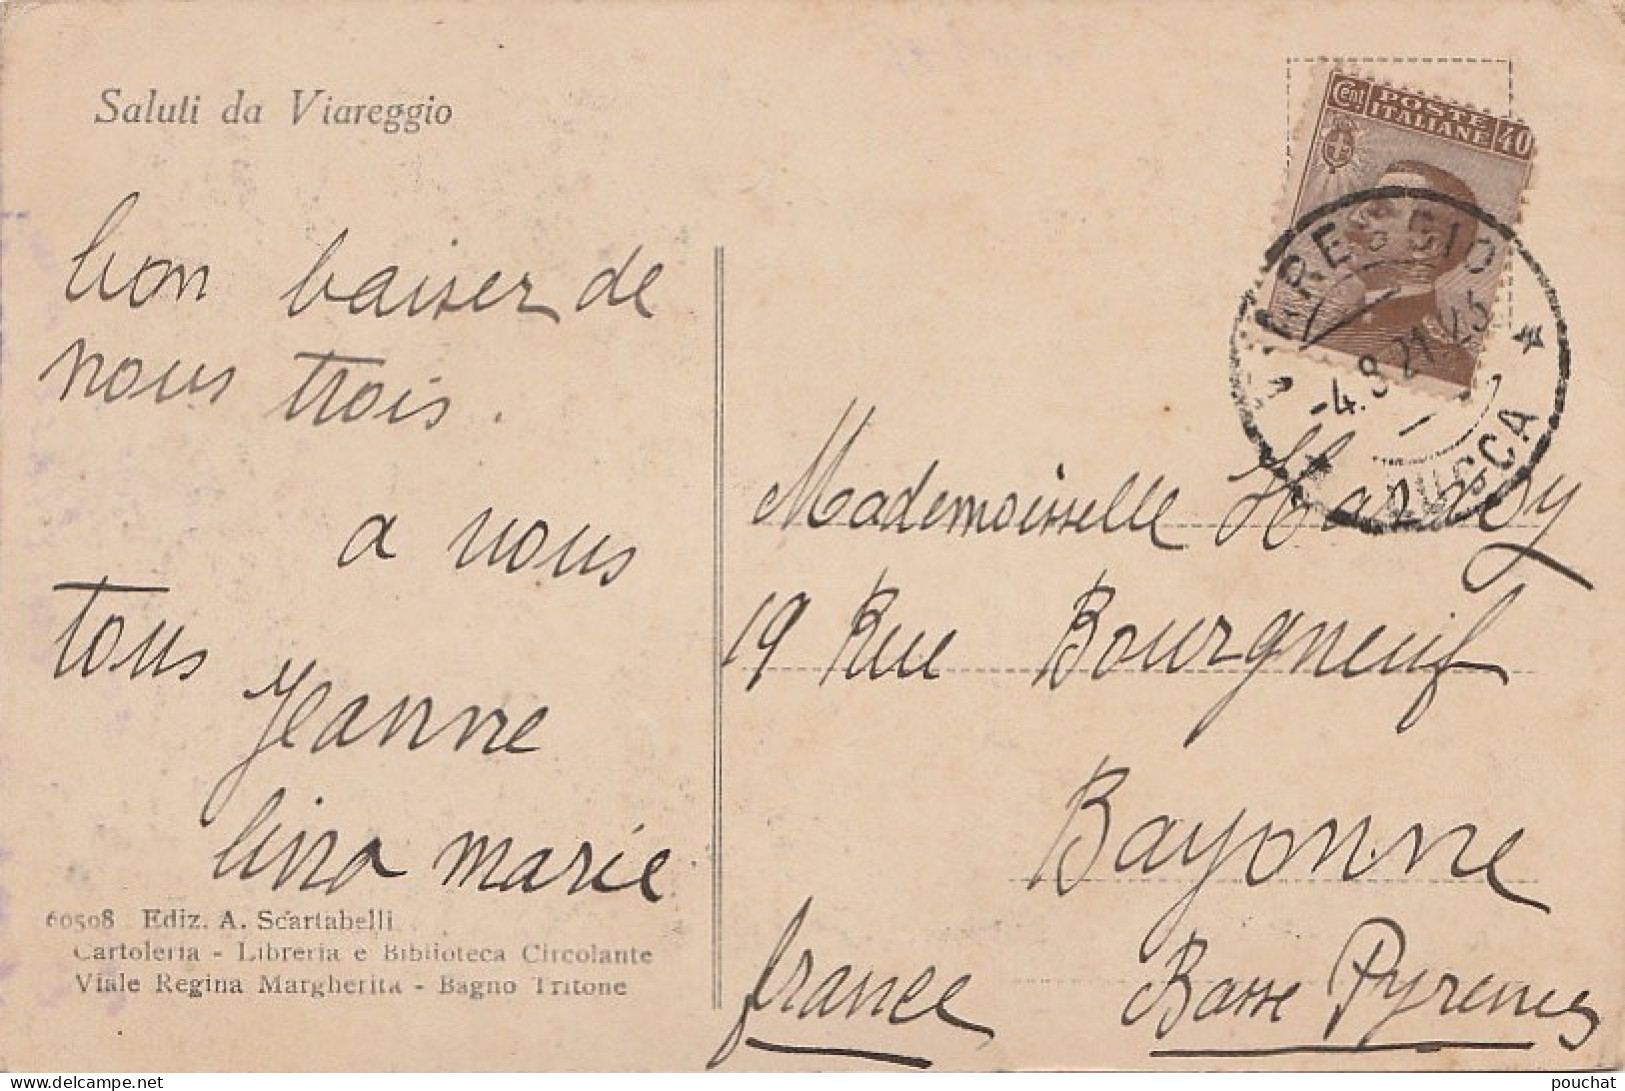 Saluti da Viareggio
bon baiser de
nous trois.
a vous
tous
Jeanne
lina marie
60508 Ediz. A. Scartabelli
Cartoleria - Libreria e Biblioteca Circolante
Viale Regina Margherita - Bagno Tritone
Cent POSTE ITALIANE 40
VIAREGGIO
-4.8.21
LUCCA
Mademoisselle
19 Rue Bourgneuf
Bayonne
france Basse Pyrenees
delcampe.net
pouchat